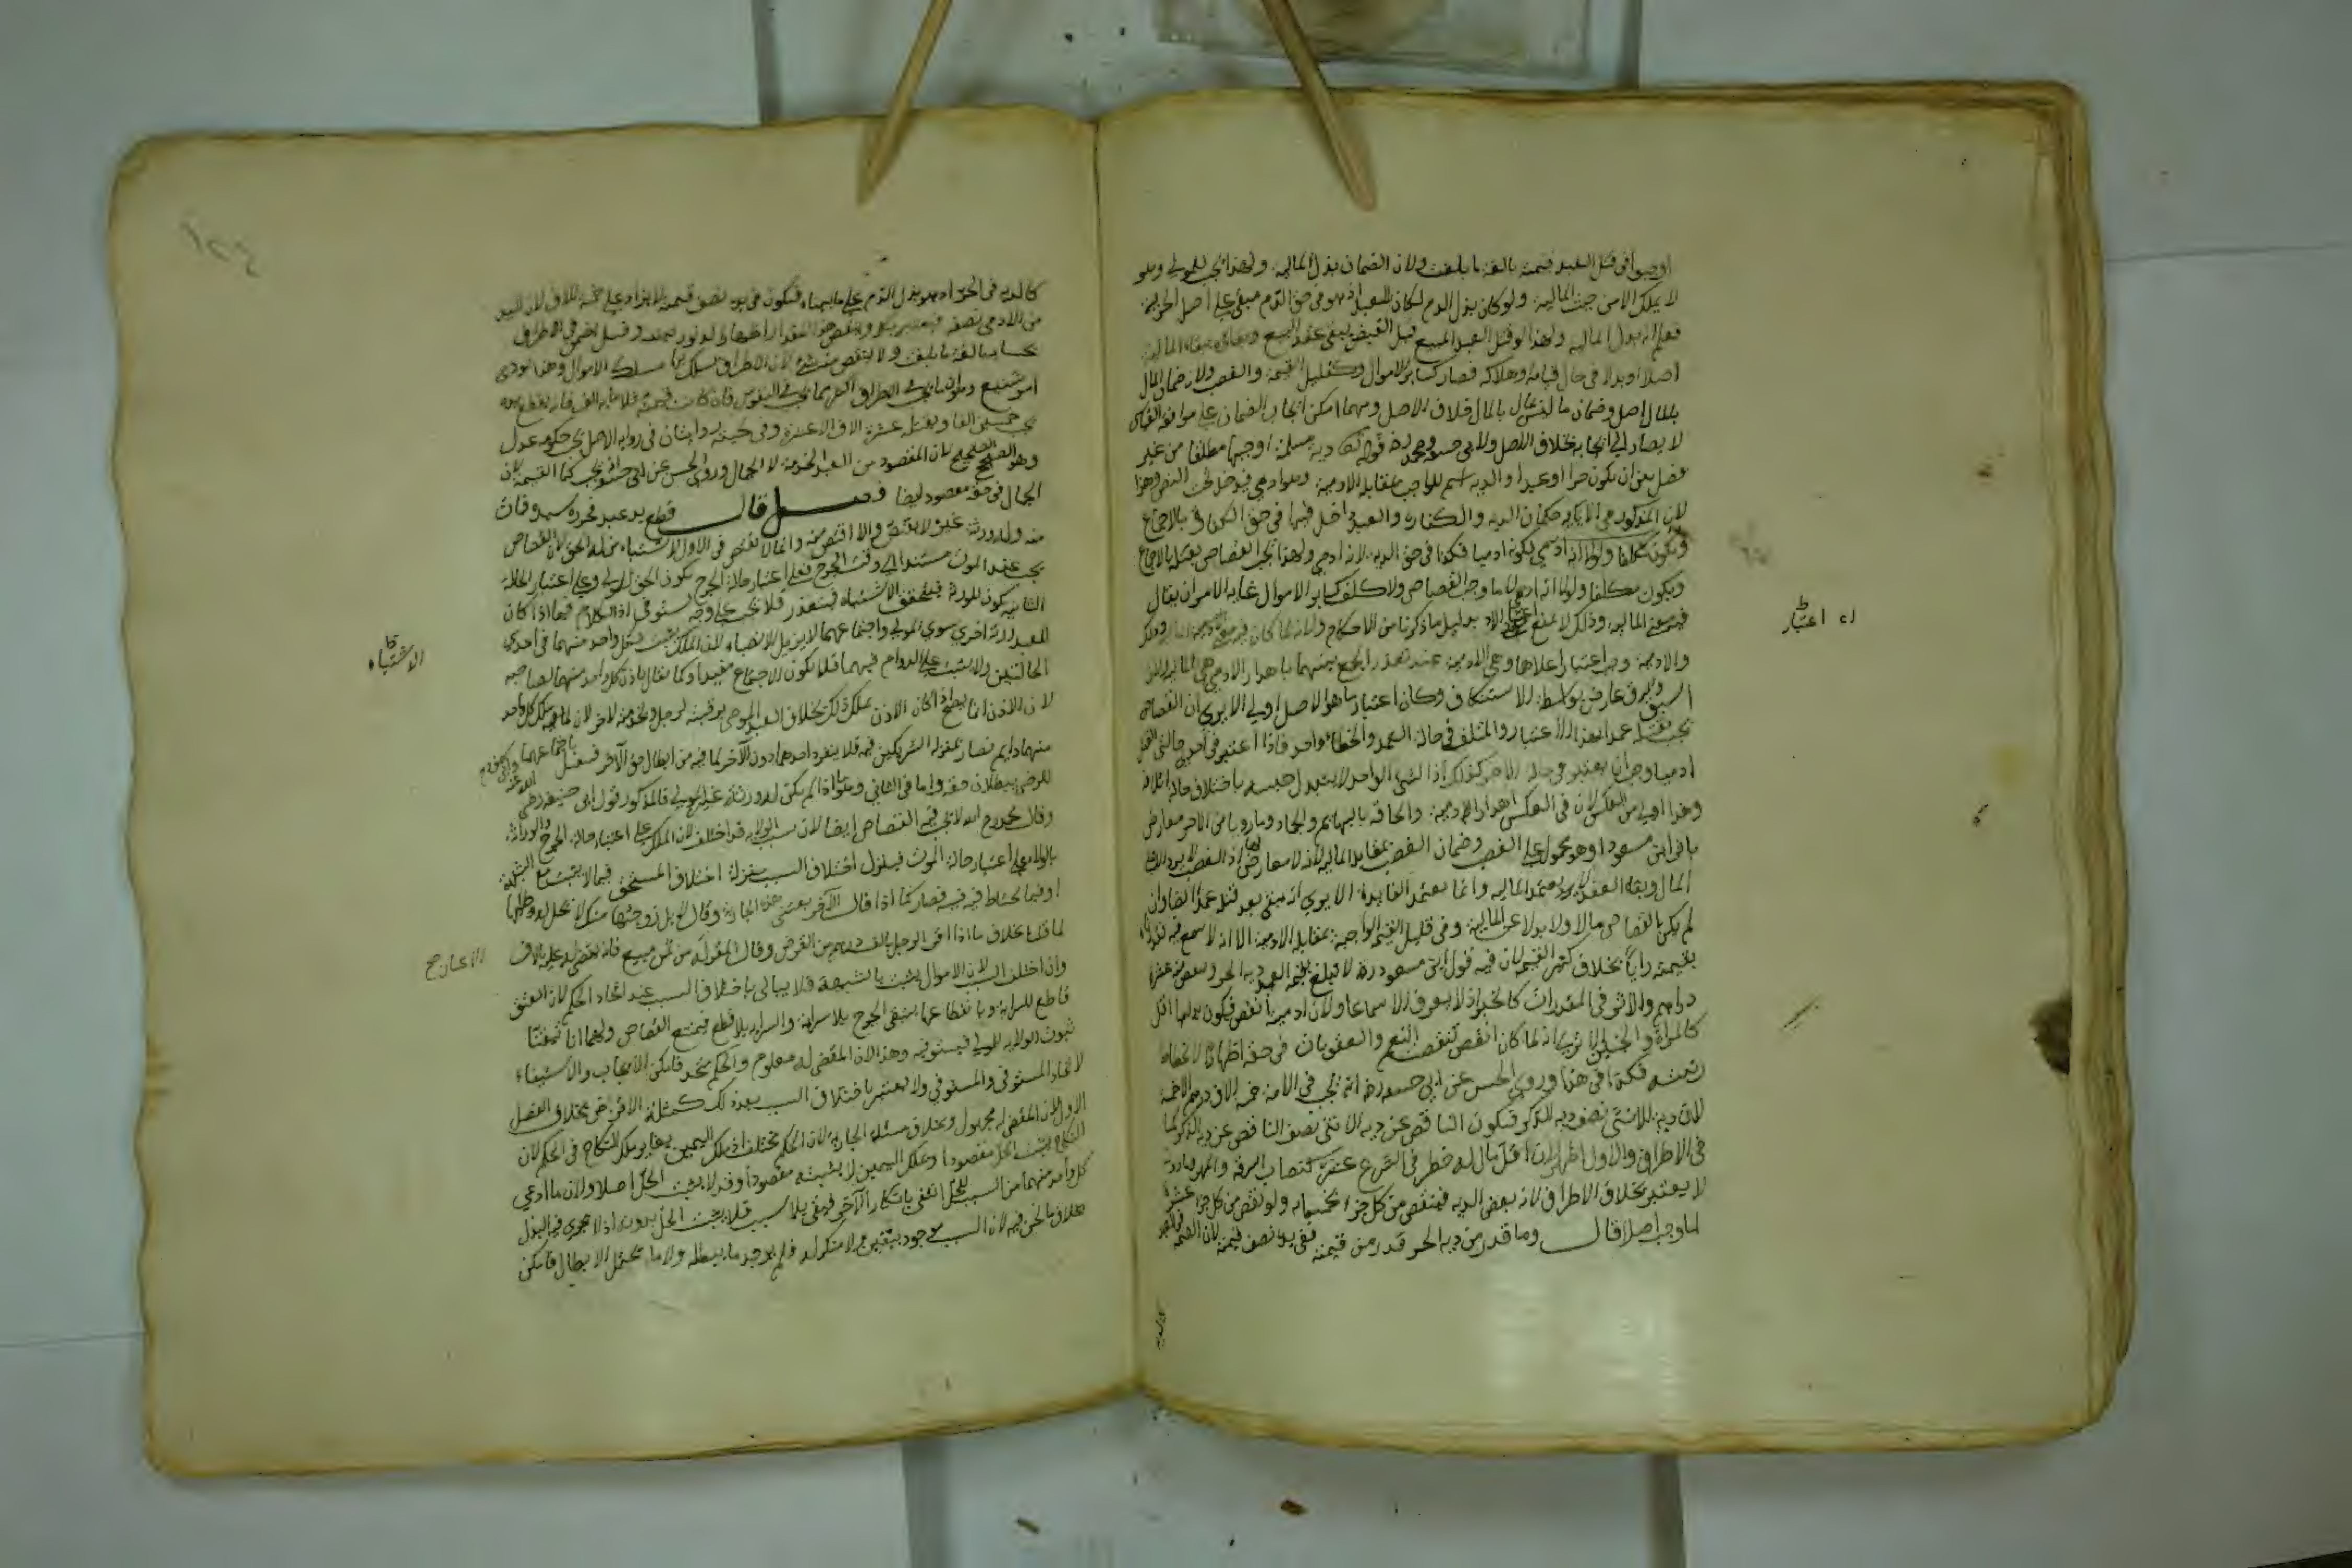 اوجبوا في قتل العبد قيمته بالغة ما بلغت ولان الضمان بدل المالية ولهذا يجب للمولى وهو
لا يملك الا من حيث المالية ولو كان بدل الدم لكان للعبد اذ هو في حق الدم مبقى على اصل الحرية
فعلم انه بدل المالية ولهذا لو قتل العبد المبيع قبل القبض يبقى عقد البيع وبقاؤه ببقاء المالية
اصلا او بدلا في حال قيامه وهلاكه فصار كسائر الاموال وكقليل القيمة والغصب ولان ضمان المال
بالمال اصل وضمان ما ليس بمال بالمال خلاف الاصل ومهما امكن ايجاب الضمان على موافقة القياس
لا يصار الى ايجابه بخلاف الاصل ولابي حنيفة ومحمد قوله تعالى ودية مسلمة اوجبها مطلقا من غير
فصل بين ان يكون حرا او عبدا والدية اسم للواجب بمقابلة الادمية وهو ادمي فيدخل تحت النص وهذا
لان المذكور في الاية حكمان الدية والكفارة والعبد داخل فيها في حق الكفارة بالاجماع
فكذا في حق الدية لانه ادمي ولهذا يجب القصاص بقتله بالاجماع
ويكون مكلفا ولولا انه ادمي لما وجب القصاص ولا كلف كسائر الاموال غاية الامر ان يقال
فيه معنى المالية وذلك لا يمنع اعتبار بدليل ما ذكرنا من الاحكام ولانه لما كان فيه معنى المالية
والادمية وجب اعتبار اعلاها وهي الادمية عند تعذر الجمع بينهما باهدار الادنى وهي المالية
اسبق والرق عارض بواسطة الاستنكاف وكان اعتبار ما هو الاصل اولى الا يرى ان القصاص
يجب بقتله عمدا بهذا الاعتبار والمتلف في حالة العمد والخطاء واحد فاذا اعتبر في احدى حالتي القتل
ادميا وجب ان يعتبر في حالة الاخرى كذلك اذ الشئ الواحد لا يتبدل جنسه باختلاف حالة اتلافه
وهذا اولى من العكس لان في العكس اهدار الادمية والحاقه بالبهائم والجماد وما رويا من الاثر معارض
باثر ابن مسعود او هو محمول على الغصب وضمان الغصب بمقابلة المالية اذ الغصب لا يرد الا على
المال وبقاء العقد لا يعتمد المالية وانما يعتمد الفايدة الا يرى انه يبقى بعد قتله عمدا ايضا وان
لم يكن القصاص مالا ولا بدلا عن المالية وفي قليل القيمة الواجب بمقابلة الادمية الا انه لا سمع فيه فقدرناه
بقيمته رأيا بخلاف كثير القيمة لان فيه قول ابن مسعود رضه لا تبلغ قيمة العبد دية الحر وينقص منه عشرة
دراهم والاثر في المقدرات كالخبر اذ لا يعرف الا سماعا ولان ادميته انقص فيكون بدلها اقل
كالمراة والجنين الا ترى انه لما كان انقص تنتقص النعم والعقوبات في حقه اظهارا لانحطاط
رتبته فكذا في هذا وروي الحسن عن ابي حنيفة رضه انه يجب في الامة خمسة الاف درهم الا خمسة
لان دية الانثى نصف دية الذكر فيكون الناقص عن دية الانثى نصف الناقص عن دية الذكر كما
في الاطراف والاول اظهر لان اقل مال له خطر في الشرع عشرة كنصاب السرقة والمهر وما دونه
لا يعتبر بخلاف الاطراف لانه بعض الدية فينقص من كل جزء بحسابه ولو نقص من كل جزء عشرة
لما وجب اصلا قال وما قدر من دية الحر قدر من قيمته ففي يده نصف قيمته لان القيمة في العبد
اعتبار
كالدية
كالدية في الحر اذ هو بدل الدم على ما بيناه فتكون في يده نصف قيمته لا يزاد على خمسة الاف لان اليد
من الادمي نصفه فيعتبر بكله وينقص هذا المقدار اظهارا لدنو رتبته وقيل يضمن في الاطراف
بحسابه بالغة ما بلغت ولا ينقص منه شئ لان الاطراف يسلك بها مسلك الاموال وهذا يؤدي
امر شنيع وهو ان ما يجب في الاطراف اكثر مما يجب في النفوس فان كانت قيمته مائة الف فانه بقطع يده
يجب خمسون الفا وبقتله عشرة الاف الا عشرة وفي لحيته روايتان في رواية الاصل يجب حكومة عدل
وهو الصحيح لان المقصود من العبد الخدمة لا الجمال وروى الحسن عن ابي حنيفة يجب كمال القيمة لان
الجمال في حقه مقصود ايضا فصل قال قطع يد عبد فحرره سيده فمات
منه وله ورثة غيره لا يقتص والا اقتص منه وانما لا يقتص في الاول لاشتباه من له الحق لان القصاص
يجب عند الموت مستندا الى وقت الجرح فعلى اعتبار حالة الجرح يكون الحق للمولى وعلى اعتبار الحالة
الثانية يكون للورثة فيتحقق الاشتباه فيتعذر فلا يجب على وجه يستوفى اذ الكلام فيما اذا كان
للعبد ورثة اخرى سوى المولى واجتماعهما لا يزيل الاشتباه لان الملك يثبت لكل واحد منهما في احدى
الحالتين ولا يثبت على الدوام فيهما فلا يكون الاجتماع مفيدا ولا يقال باذن كل واحد منهما لصاحبه
لان الاذن انما يصح اذا كان الاذن يملك ذلك بخلاف العبد الموصى برقبته لرجل وبخدمته لاخر لان لكل واحد
منهما دايم فصار بمنزلة الشريكين فيه فلا ينفرد احدهما دون الاخر لما فيه من ابطال حق الاخر فيقتل باجتماعهما
للرضى ببطلان حقه واما في الثاني وهو ما اذا لم يكن له ورثة غير المولى فالمذكور قول ابي حنيفة رضي
الله عنه
وقال محمد رح الله لا يجب فيه القصاص ايضا لان سبب الولاية قد اختلف لان الملك على اعتبار حالة الجرح والوراثة
بالولاء على اعتبار حالة الموت فينزل اختلاف السبب منزلة اختلاف المستحق فيما لا يثبت مع الشبهة
او فيما يحتاط فيه فصار كما اذا قال الاخر بعتني هذه الجارية وقال لا بل زوجتها منك لا يحل له وطئها
لما قلنا بخلاف ما اذا اقر لرجل بالف درهم من القرض وقال المقر له من ثمن مبيع فانه يقضى له عليه بالف
وان اختلف السبب لان الاموال يثبت بالشبهة فلا يبالى باختلاف السبب عند اتحاد الحكم لان العتق
قاطع للسراية وبانقطاعها يبقى الجرح بلا سراية والسراية بلا قطع فيمتنع القصاص ولهما انا تيقنا
ثبوت الولاية للمولى فيستوفيه وهذا لان المقضي له معلوم والحكم متحد فامكن الايجاب والاستيفاء
لاتحاد المستوفى والمستوفي ولا يعتبر باختلاف السبب بعد ذلك كمسئلة الاقرار بخلاف الفصل
الاول لان المقضي له مجهول وبخلاف مسئلة الجارية لان الحكم مختلف اذ ملك اليمين يغاير ملك النكاح في الحكم لان
النكاح يثبت الحل مقصودا وملك اليمين لا يثبته مقصودا وقد لا يثبت الحل اصلا ولان ما ادعى
كل واحد منهما من السبب للحل انتفى بانكار الاخر فبقي بلا سبب فلا يثبت الحل بدونه اذ لا يجري فيه البذل
بخلاف ما نحن فيه لان السبب موجود بيقين ولا منكر له فلم يوجد ما يبطله ولا ما يحتمل الابطال فامكن
الاشتباه